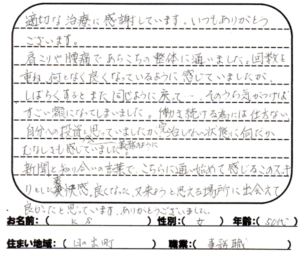 適切な治療に感謝しています。いつもありがとう
ございます。
肩こりや腰痛であちこちの整体に通いました。回数を
重ね、何となく良くなっているように感じていましたが、
しばらくするとまた同じように戻って… そのうち気がつけば
すごい額になってしまいました。働き続ける為には仕方ない
自分への投資と思っていましたが、完治しない状態に何だか
むなしさも感じていました
新聞と知り合いの言葉で、こちらに通い始めて感じること
快感。良くなった、又来ようと思える場所に出会えて
良かったと思っています。ありがとうございました。
お名前:( K S ) 性別:( 女 ) 年齢:( 50代 )
住まい地域:( 日の出町 ) 職業:( 事務職 )